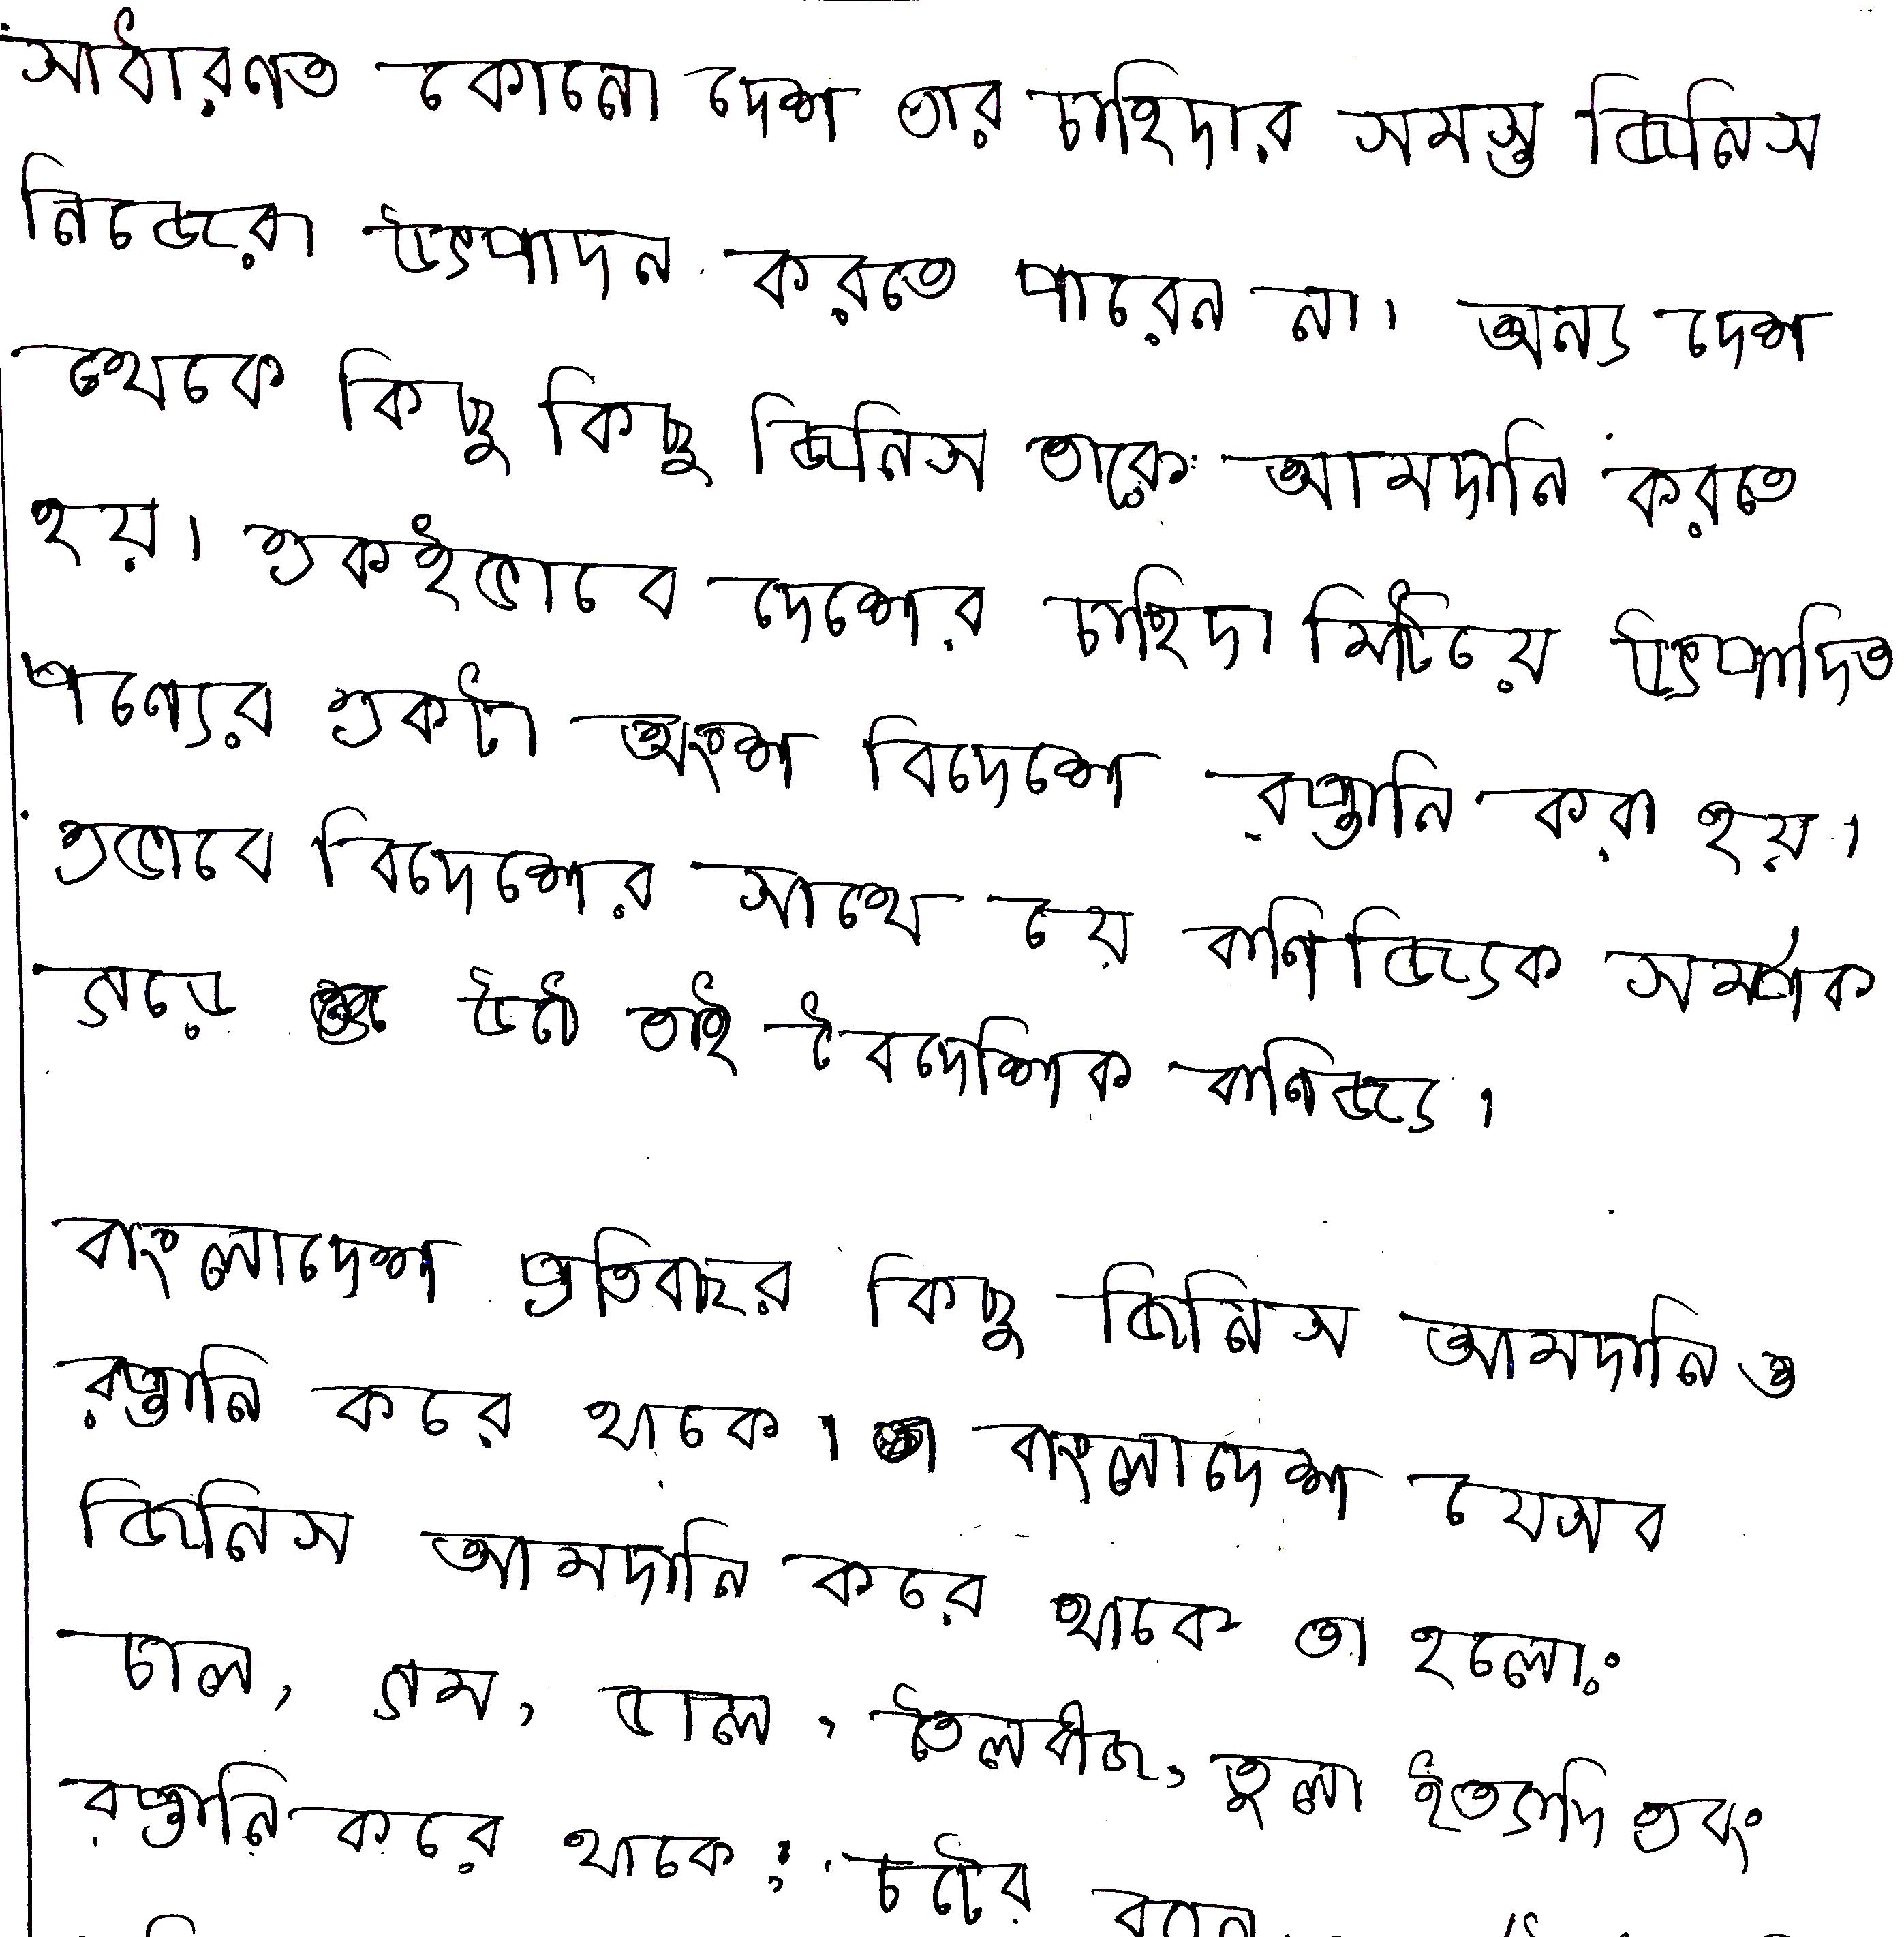 সাধারণত কোনো দেশ তার চাহিদার সমস্ত জিনিস
নিজেরা উৎপাদন করতে পারেন না। অন্য দেশ
থেকে কিছু কিছু জিনিস তাকে আমদানি করতে
হয়। একইভাবে দেশের চাহিদা মিটিয়ে উৎপাদিত
পণ্যের একটা অংশ বিদেশে রপ্তানি করা হয়।
এভাবে বিদেশের সাথে যে বাণিজ্যিক সম্পর্ক
গড়ে উঠে তাই বৈদেশিক বাণিজ্য।
বাংলাদেশ প্রতিবছর কিছু জিনিস আমদানি ও
রপ্তানি করে থাকে। বাংলাদেশ যেসব
জিনিস আমদানি করে থাকে তা হলোঃ
চাল, গম, ডাল, তৈলবীজ, তুলা ইত্যাদি এবং
রপ্তানি করে থাকে: চটের